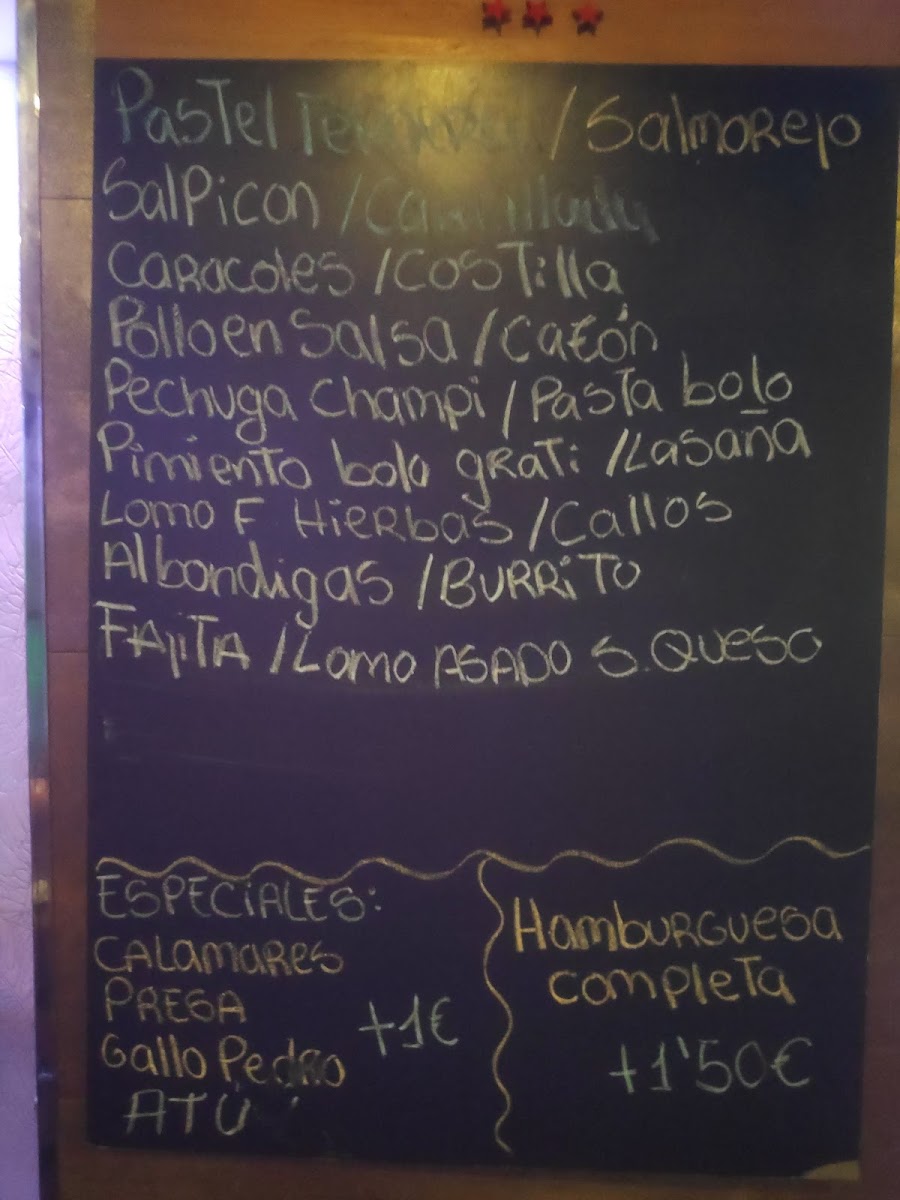 Pastel / Salmorejo
Salpicon /
Caracoles / Costilla
Pollo en Salsa / Cazón
Pechuga Champi / Pasta bolo
Pimiento bolo grati / Lasaña
Lomo F Hierbas / Callos
Albondigas / BURRiTO
FAjiTA / Lomo ASADO S. QUESO
ESPECiALES:
CALAMARES
PRESA
Gallo Pedro
+1€
Hamburguesa
completa
+1'50€